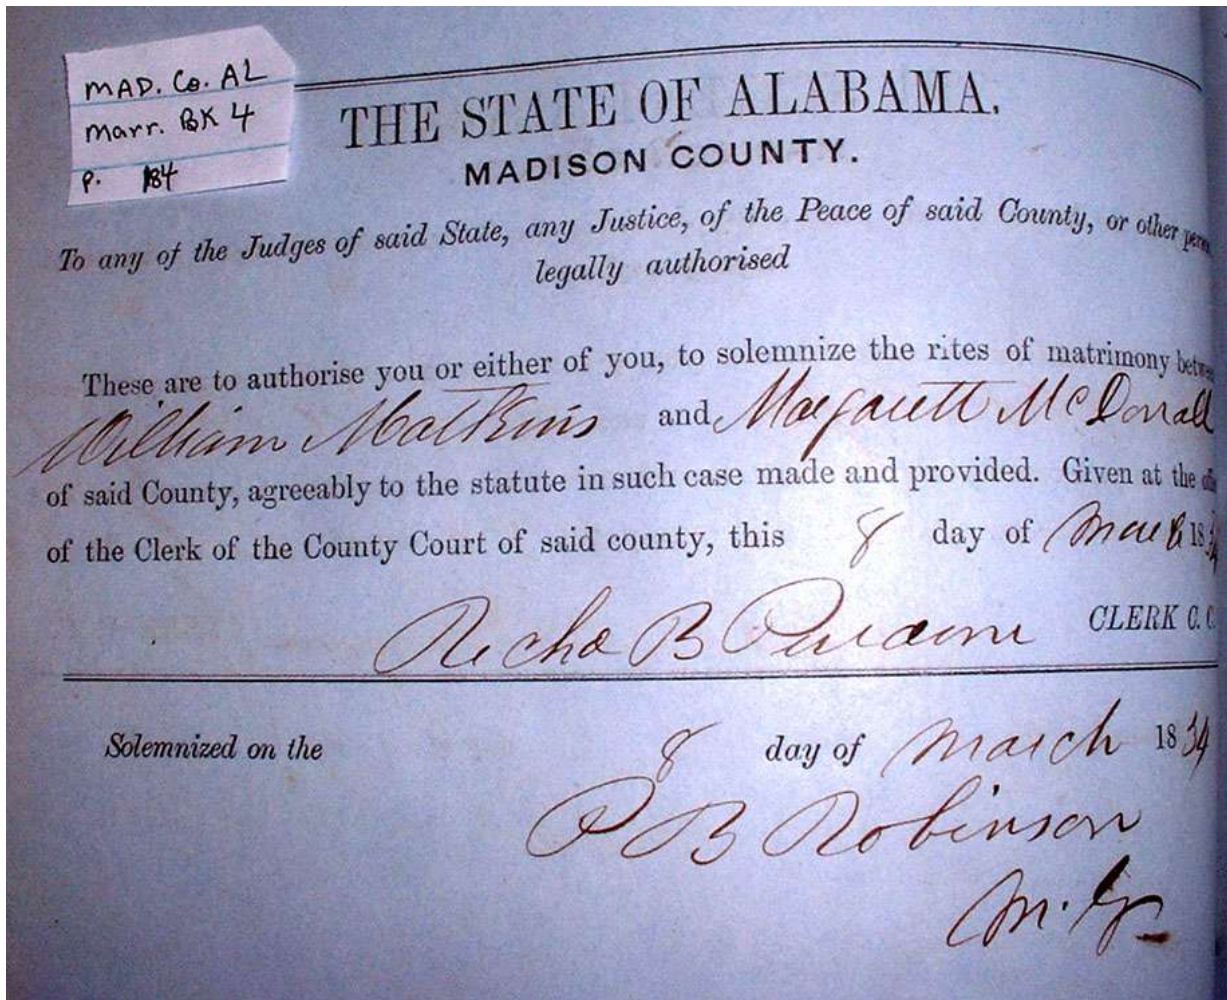 MAD. Co. AL
Marr. BK 4
P. 184
THE STATE OF ALABAMA.
MADISON COUNTY.
To any of the Judges of said State, any Justice, of the Peace of said County, or other
legally authorised
These are to authorise you or either of you, to solemnize the rites of matrimony
William Matkins and Margarett McDonald
of said County, agreeably to the statute in such case made and provided. Given at the
of the Clerk of the County Court of said county, this 8 day of March 1834
B CLERK C. C.
Solemnized on the 8 day of March 1834
P B Robinson
M. G.